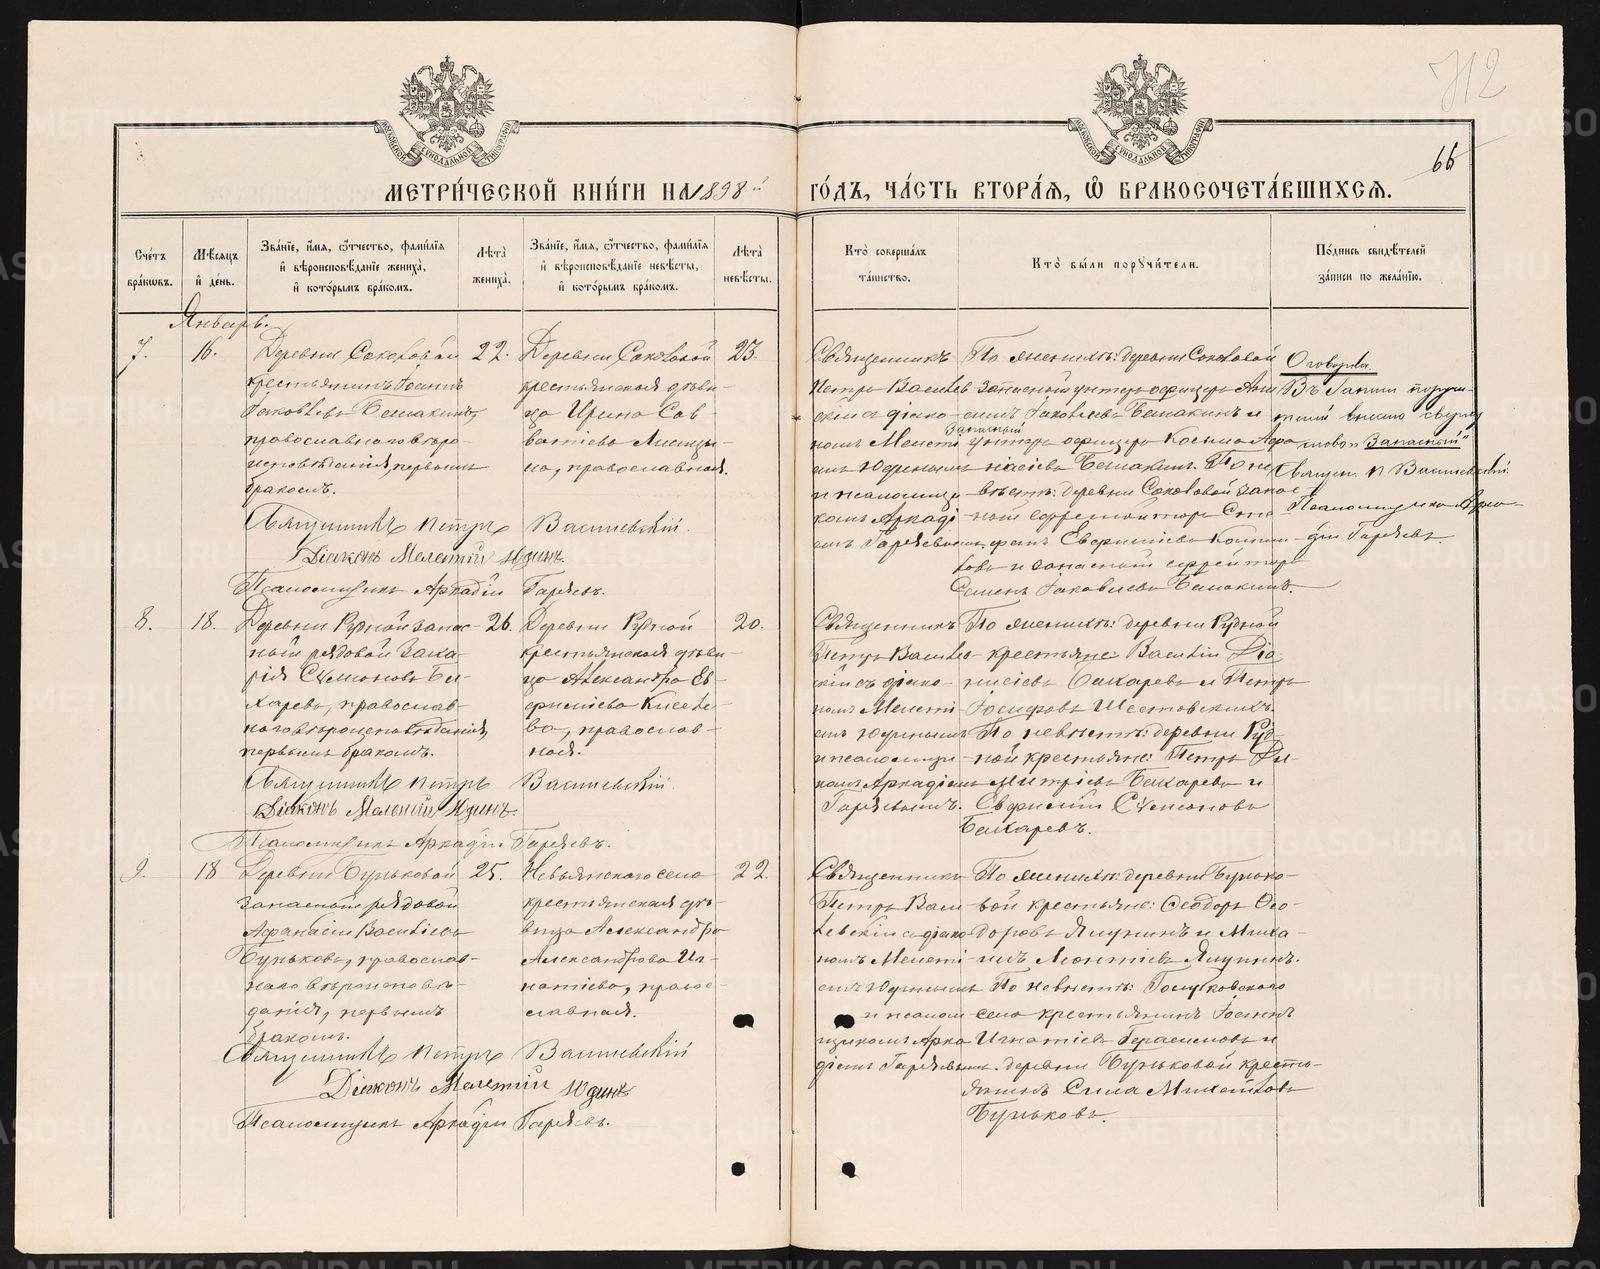 712
66
МЕТРИ́ЧЕСКОЙ КНИ́ГИ НА 1898й ГО́ДЪ, ЧА́СТЬ ВТОРА́Ѧ, Ѽ БРАКОСОЧЕТА́ВШИХСѦ.
Сче́тъ бра́кѡвъ.
Мѣ́сѧцъ и҆ де́нь.
Зва́нїе, и҆́мѧ, ѻ҆́тчество, фами́лїѧ и҆ вѣроисповѣ́данїе жениха̀, и҆ кото́рымъ бра́комъ.
Лѣта̀ жениха̀.
Зва́нїе, и҆́мѧ, ѻ҆́тчество, фами́лїѧ и҆ вѣроисповѣ́данїе невѣ́сты, и҆ кото́рымъ бра́комъ.
Лѣта̀ невѣ́сты.
Кто̀ соверша́лъ та́инство.
Кто̀ бы́ли порꙋчи́тели.
По́дпись свидѣ́телей за́писи по жела́нїю.
Январь.
7.
16.
Деревни Соколовой
крестьянинъ Іоаннъ
Іаковлевъ Бешакинъ,
православнаго вѣро-
исповѣданія, первымъ
бракомъ.
22.
Деревни Соколовой
крестьянская дѣви-
ца Ирина Сав-
ватіева Лисицы-
на, православная.
23.
Священникъ
Петръ Василев
скій съ діако-
номъ Мелеті
емъ Юдинымъ
и псаломщи-
комъ Аркаді-
емъ Гаряевымъ.
По женихѣ: деревни Соколовой
запасный унтеръ-офицеръ
Іаковлевъ Бешакинъ и
Запасный
унтеръ офицеръ Косьма Афа
насіевъ Бешакинъ. По не
вѣстѣ: деревни Соколовой запас-
ной ефрейторъ Сте
фанъ Евфиміевъ
ковъ и запасный ефрейторъ
Семенъ Іаковлевъ Бешакинъ.
Оговорка.
Въ записи поручи-
телей внесено сверху
слово „Запасный“
Священ. П Василевскій
Псаломщикъ Арка-
дій Гаряевъ.
Священникъ Петръ Василевскій.
Діаконъ Мелетій Юдинъ.
Псаломщикъ Аркадій Гаряевъ.
8.
18.
Деревни Рудной запас-
ный рядовой Заха-
рія Сѵмеоновъ Ба-
харевъ, православ-
наго вѣроисповѣданія,
первымъ бракомъ.
26.
Деревни Рудной
крестьянская дѣви-
ца Александра Ев-
фиміева Киселе-
ва, православ-
ная.
20.
Священникъ
Петръ Василев-
скій съ діако-
номъ Мелеті-
емъ Юдинымъ
и псаломщи-
комъ Аркадіемъ
Гаряевымъ.
По женихѣ: деревни Рудной
крестьяне: Василій Діо-
нисіевъ Бахаревъ и Петръ
Іосифовъ Шестовскихъ.
По невѣстѣ: деревни Руд-
ной крестьяне: Петръ Ди-
митріевъ Бахаревъ и
Евфимій Сѵмеоновъ
Бахаревъ.
Священникъ Петръ Василевскій.
Діаконъ Мелетій Юдинъ.
Псаломщикъ Аркадій Гаряевъ.
9.
18
Деревни Бунькӧвой
запасный рядовой
Афанасій Василіевъ
Буньковъ, православ-
наго вѣроисповѣ-
данія, первымъ
бракомъ.
25.
Невьянскаго села
крестьянская дѣ-
вица Александра
Александрова Иг-
натіева, правос-
лавная.
22.
Священникъ
Петръ Васи
левскій съ діако
номъ Мелеті
емъ Юдинымъ
и псалом
щикомъ Арка
діемъ Гаряевымъ.
По женихѣ: деревни Бунько-
вой крестьяне: Ѳеодоръ Ѳео-
доровъ Якунинъ и Миха-
илъ Леонтіевъ Якунинъ.
По невѣстѣ: Голубковскаго
села крестьянинъ Іоаннъ
Игнатіевъ Герасимовъ и
деревни Буньковой кресть-
янинъ Сила Михайловъ
Буньковъ.
Священникъ Петръ Василевскій
Діаконъ Мелетій Юдинъ
Псаломщикъ Аркадій Гаряевъ.
METRIKI.GASO-URAL.RU